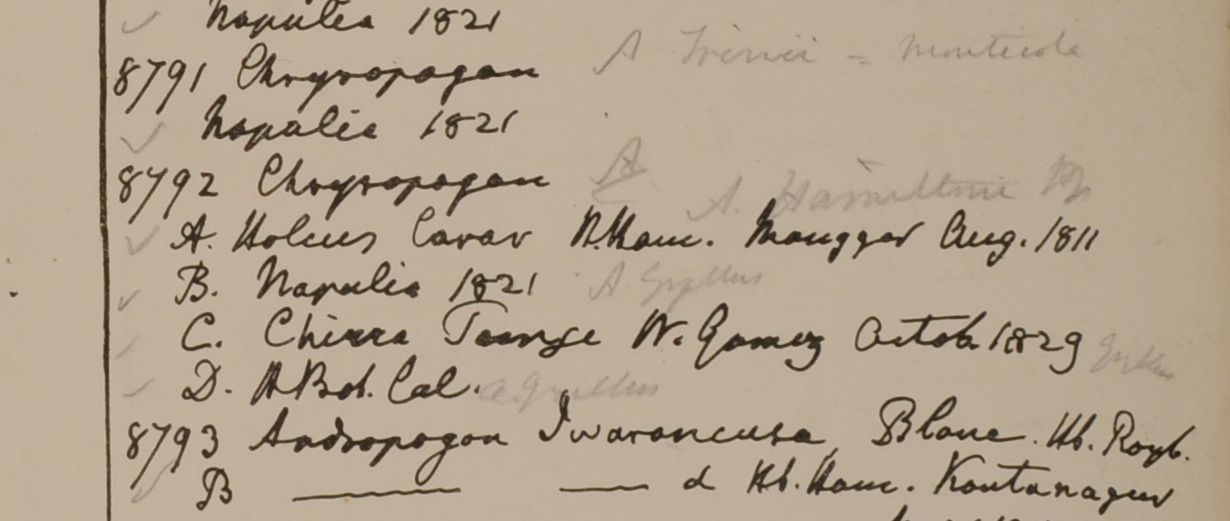 Napalia 1821
8791 Chrysopogon A Trinii = monticola
Napalia 1821
8792 Chrysopogon A
A. Hamiltonii
A. Holcus Caran H.Ham. Mongger Aug. 1811
B. Napalia 1821 A Gryllus
C. Chirra W. Gomez Octob. 1829 Gryllus
D. H.Bot. Cal. A Gryllus
8793 Andropogon Iwarancusa, Blanc. Hb. Roxb.
B —— —— d Hb. Ham.